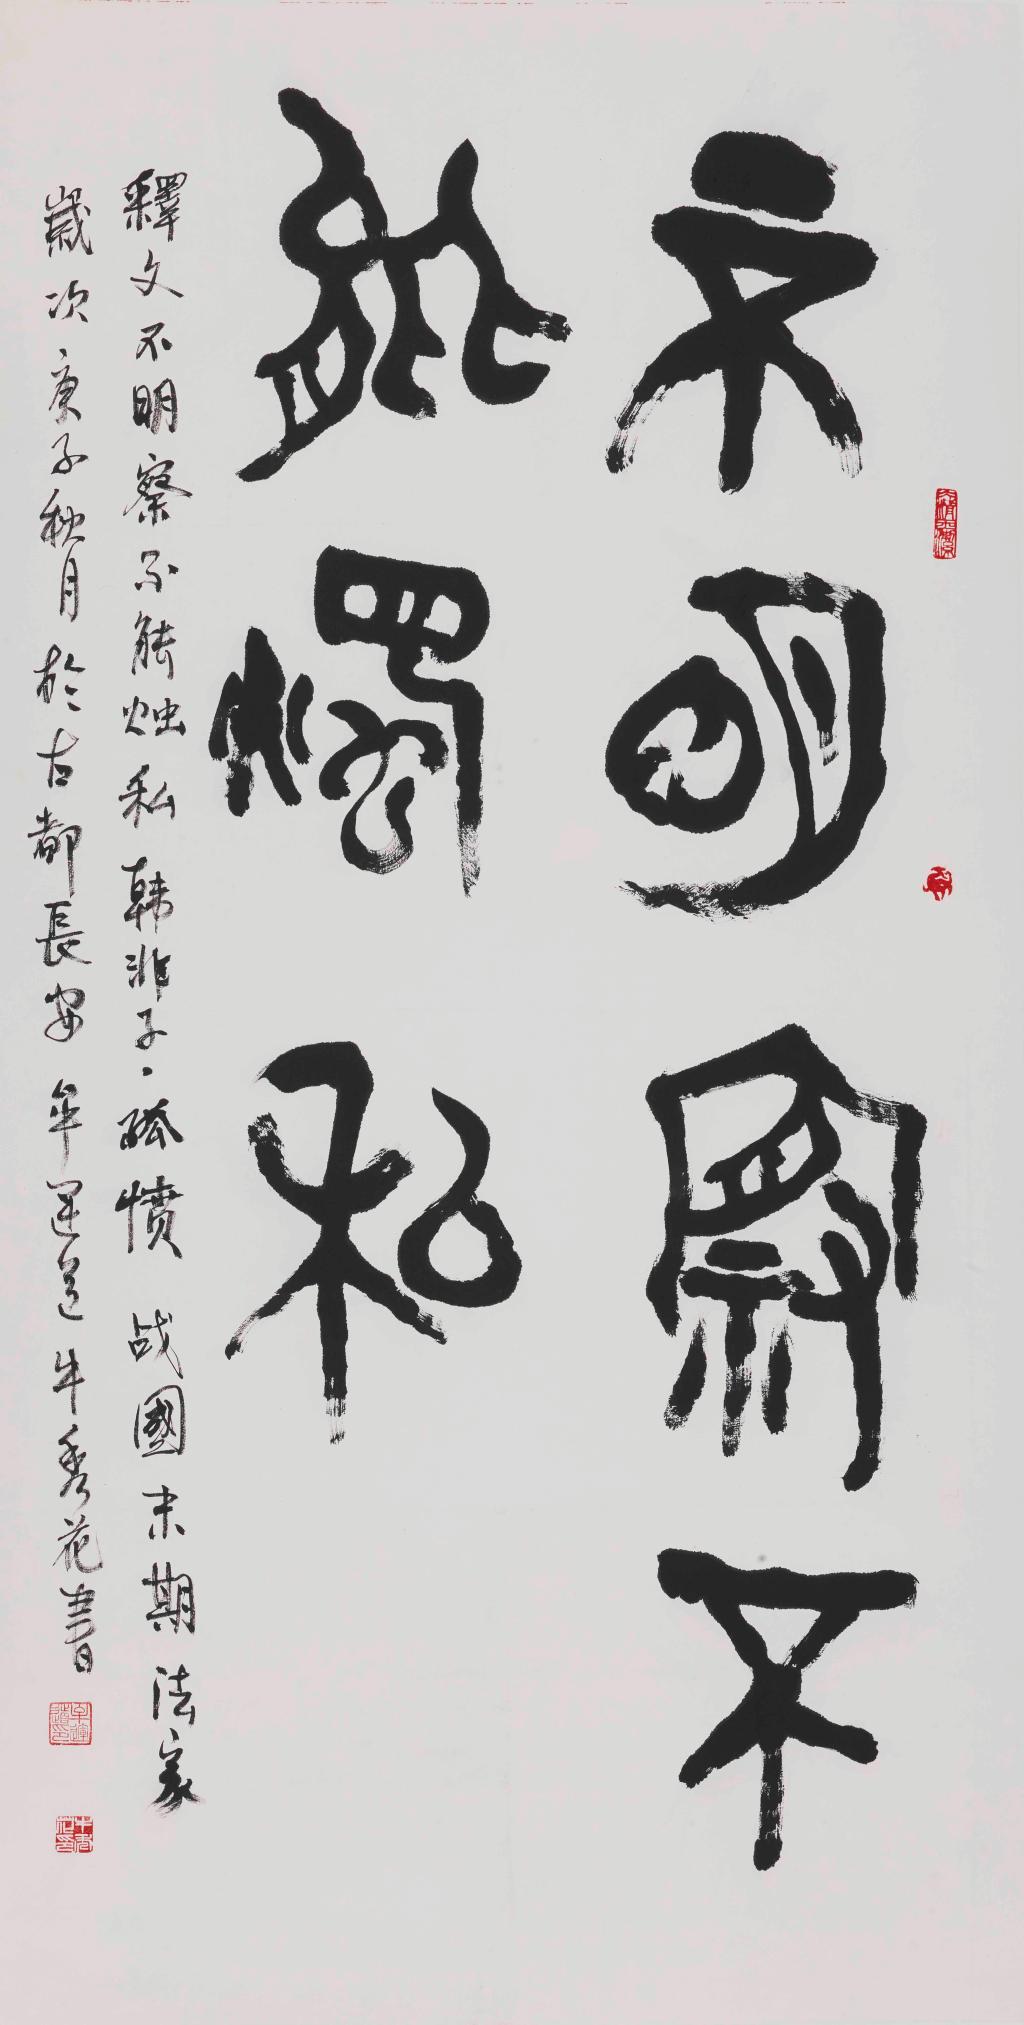 不明察不
能燭私
釋文不明察不能烛私韩非子·孤愤战國末期法家
歲次庚子秋月於古都長安牟運道牛秀花書